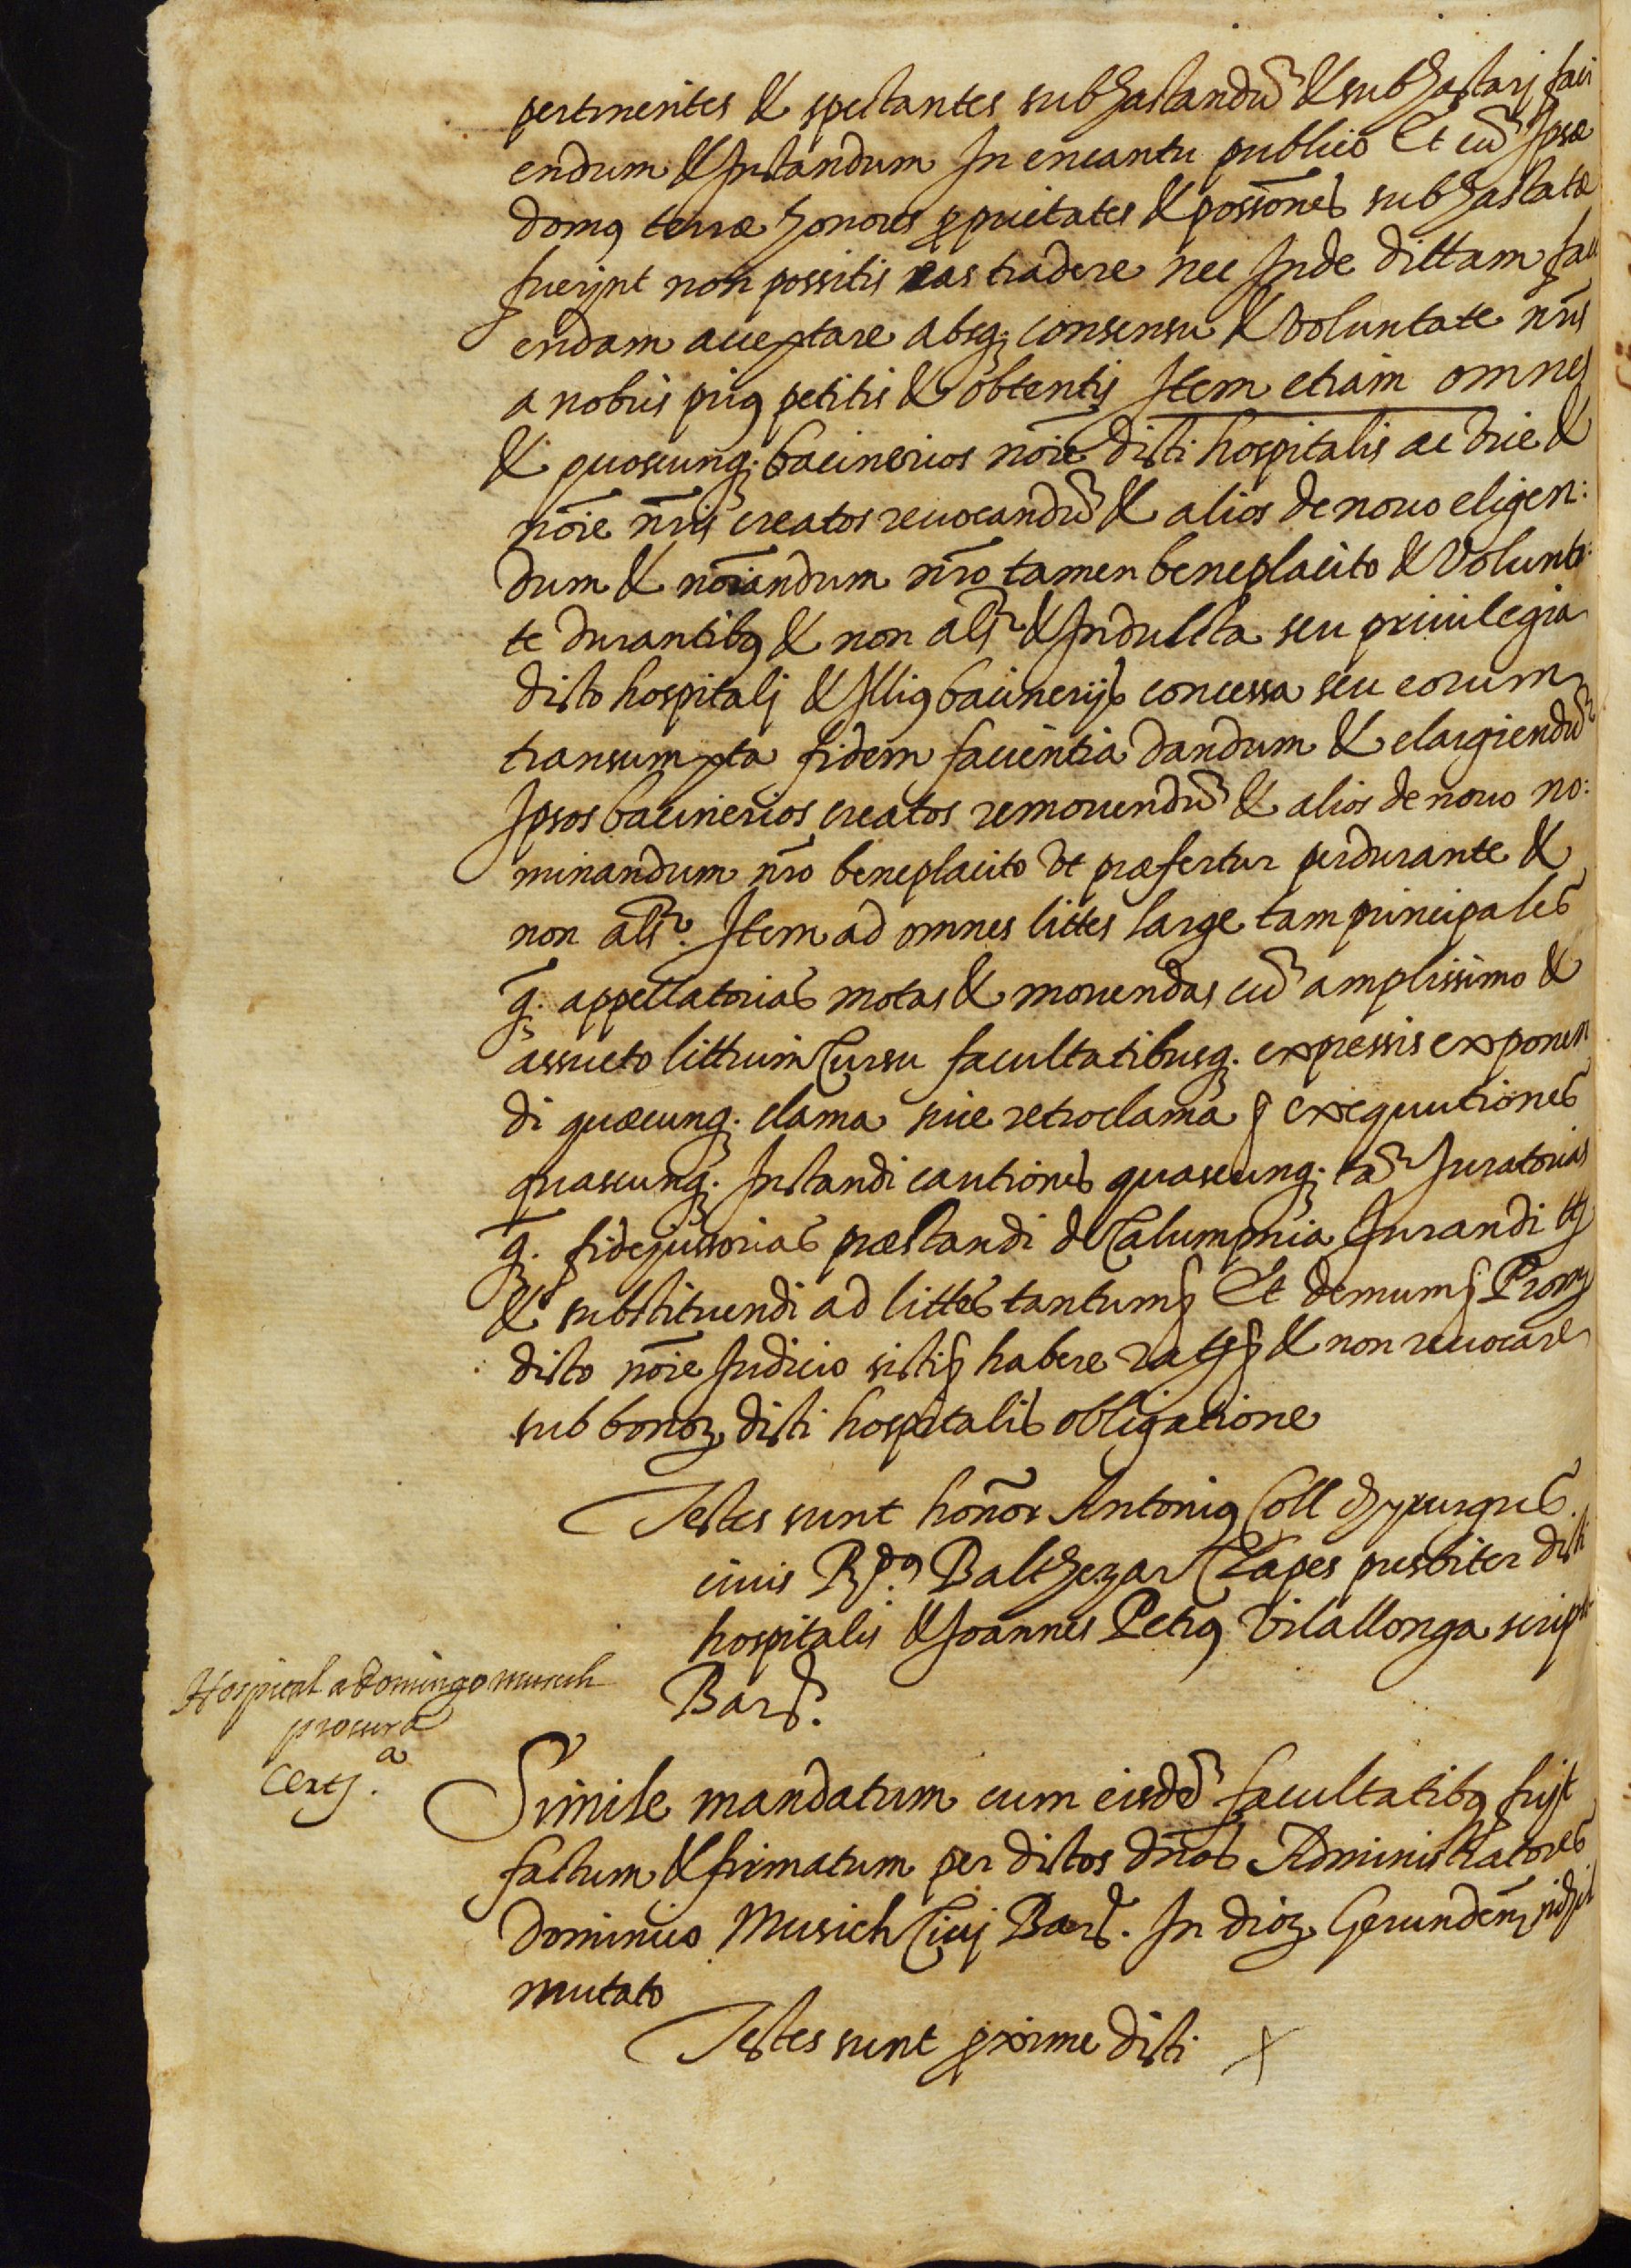 pertinentes & spectantes subhastandũ & subhastarj faci
endum & Instandum In encantu publico Et cũ Ipsæ
domꝰ terræ honores ꝓprietates & possōnes subhastatæ
fuerjnt non possitis eas tradere nec Inde dittam faci
endam acceptare absq; consensu & voluntate nr̃is
a nobis priꝰ petitis & obtentis Item etiam omnes
& quoscunq; bacinerios nōie dicti hospitalis ac vice &
nōie nr̃is creatos reuocandũ & alios de nouo eligen:
dum & nōiandum nr̃o tamen beneplacito & volunta:
te durantibꝰ & non alr̃ & Indulta seu priuilegia
dicto hospitalj & Illiꝰ bacinerijs concessa seu eorum
transumpta fidem facientia dandum & elargiendũ
Ipsos bacinerios creatos remouendũ & alios de nouo no:
minandum nr̃o beneplacito vt præfertur perdurante &
non alr̃. Item ad omnes littes large tam principales
q̃. appellatorias motas & mouendas cũ amplissimo &
assueto littium Cursu facultatibusq. expressis exponen
di quæcunq. clama siue retroclama & exequutiones
quascunq. Instandi cautiones quascunq. tã Iuratorias
q̃. fidejussorias præstandi de Calumpnia Iurandi
& substituendi ad littes tantum Et demum
dicto nōie Iudicio sisti habere & non reuocare
sub bonoꝝ dicti hospitalis obligatione
Testes sunt honor Antoniꝰ Coll chyrurgus
ciuis Rꝰ. Balthezar Clapes presbiter dicti
hospitalis & Joannes Petrꝰ Vilallonga script.
Barꝰ.
Hospital a domingo musich
procura
Certj.ᵃ
Simile mandatum cum eisdẽ facultatibꝰ fujt
factum & firmatum per dictos dños Administratores
Dominico Musich Ciuj Barꝰ. In dioꝝ Gerunden̄
mutato
Testes sunt ꝓxime dicti